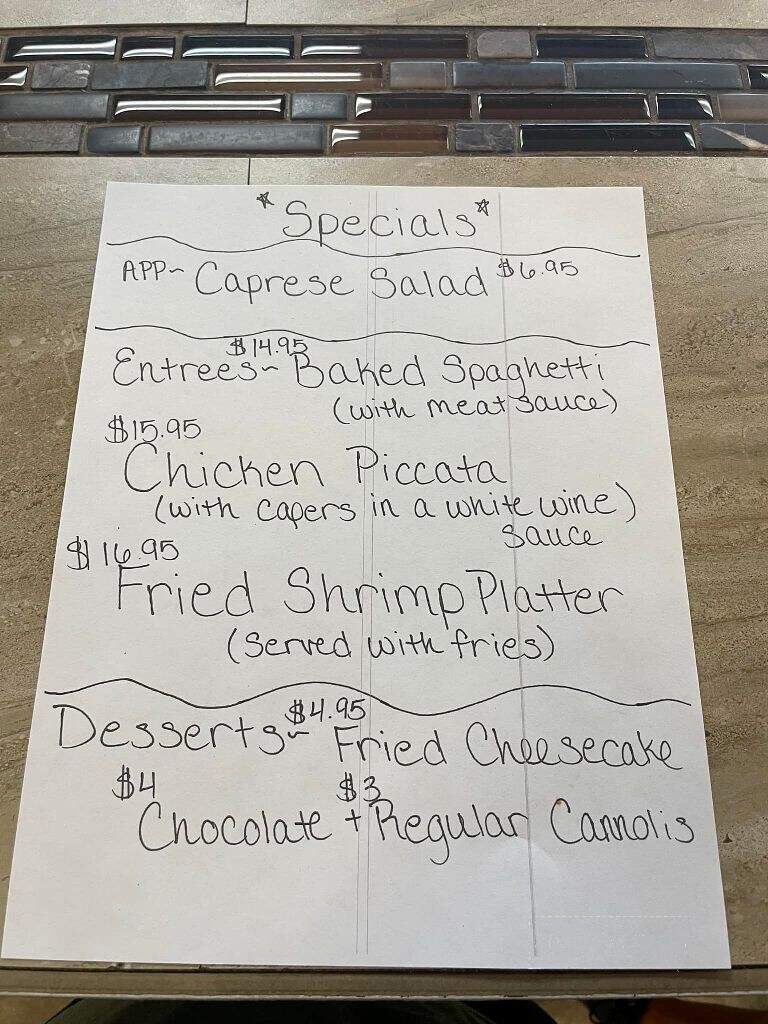 *Specials*
APP~ Caprese Salad $6.95
$14.95
Entrees~ Baked Spaghetti
(with meat sauce)
$15.95
Chicken Piccata
(with capers in a white wine)
sauce
$16.95
Fried Shrimp Platter
(Served with fries)
$4.95
Desserts~ Fried Cheesecake
$4 $3
Chocolate + Regular Cannolis